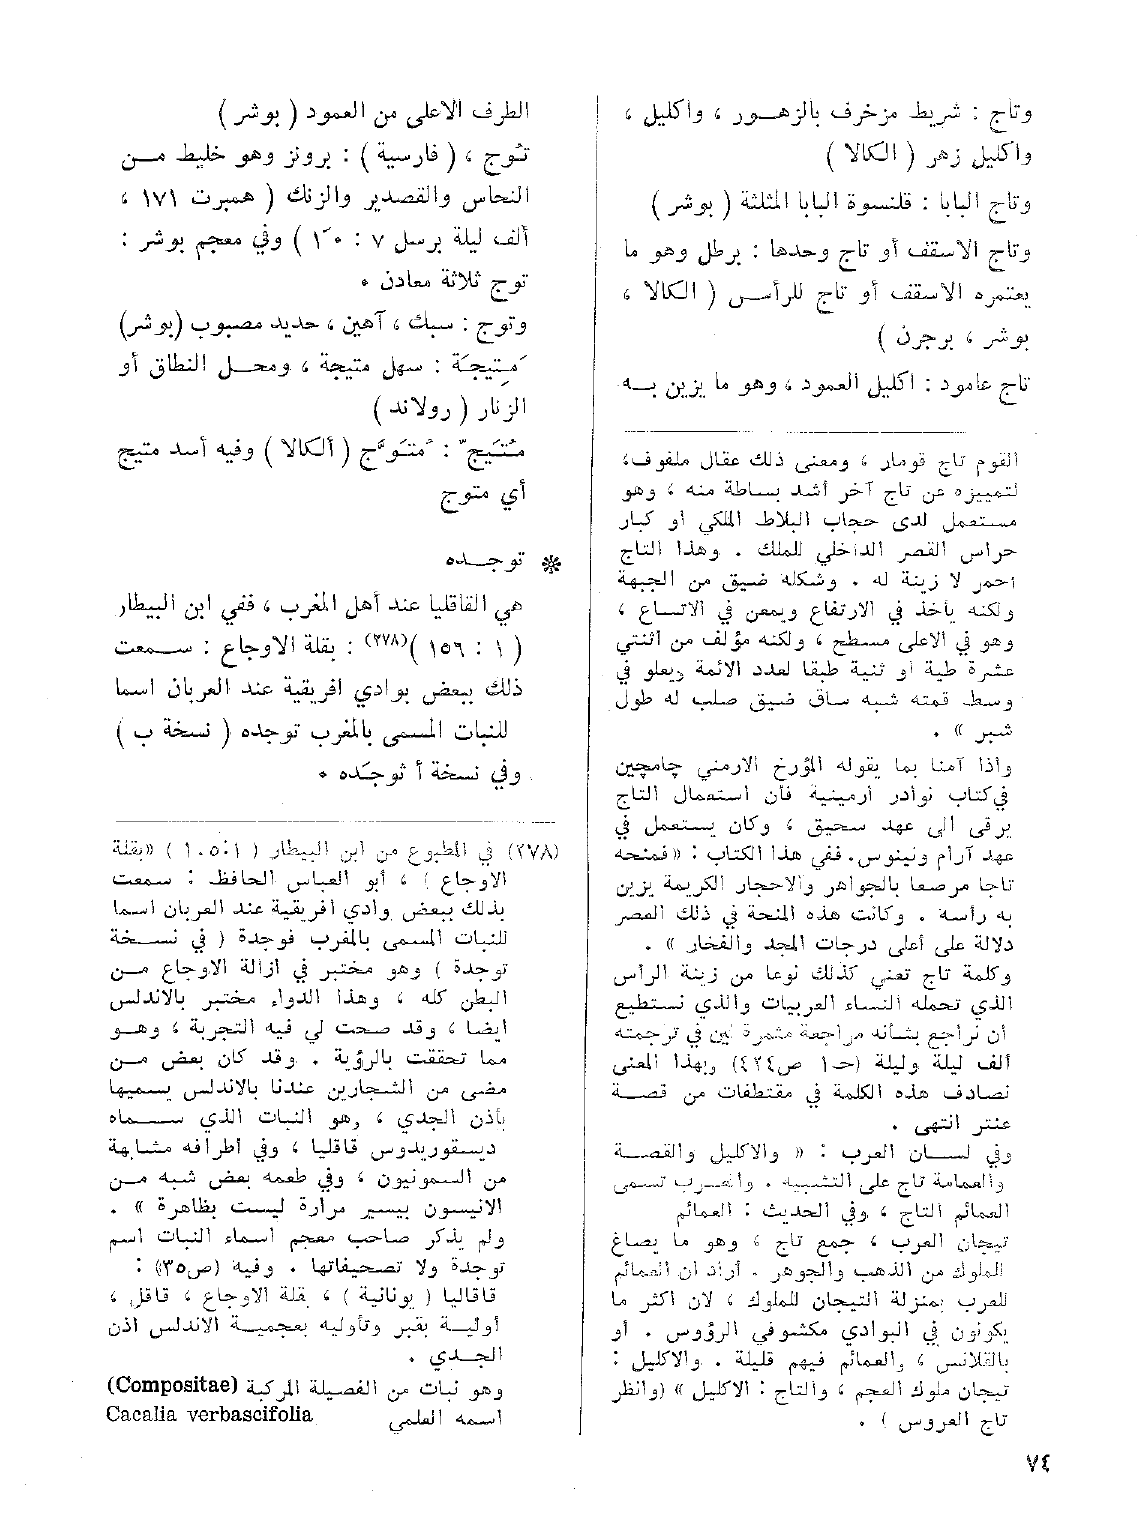 وتاج : شريط مزخرف بالزهـور ، واكليل ،
واكليل زهر ( الكالا )
وتاج البابا : قلنسوة البابا المثلثة ( بوشر )
وتاج الاسقف أو تاج وحدها : برطل وهو ما
يعتمره الاسقف أو تاج للرأس ( الكالا ،
بوشر ، برجرن )
تاج عامود : اكليل العمود ، وهو ما يزين به
القوم تاج قومار ، ومعنى ذلك عقال ملفوف،
لتمييزه عن تاج آخر أشد بساطة منه ، وهو
مستعمل لدى حجاب البلاط الملكي أو كبار
حراس القصر الداخلي للملك . وهذا التاج
احمر لا زينة له . وشكله ضيق من الجبهة
ولكنه يأخذ في الارتفاع ويمعن في الاتساع ،
وهو في الاعلى مسطح ، ولكنه مؤلف من اثنتي
عشرة طية أو ثنية طبقا لعدد الائمة ويعلو في
وسط قمته شبه ساق ضيق صلب له طول
شبر » .
واذا آمنا بما يقوله المؤرخ الارمني چامچين
في كتاب نوادر أرمينية فان استعمال التاج
يرقى الى عهد سحيق ، وكان يستعمل في
عهد آرام ونينوس. ففي هذا الكتاب : «فمنحه
تاجا مرصعا بالجواهر والاحجار الكريمة يزين
به رأسه . وكانت هذه المنحة في ذلك العصر
دلالة على أعلى درجات المجد والفخار » .
وكلمة تاج تعني كذلك نوعا من زينة الرأس
الذي تحمله النساء العربيات والذي نستطيع
أن نراجع بشأنه مراجعة مثمرة لين في ترجمته
ألف ليلة وليلة (حـ١ ص٤٢٤) وبهذا المعنى
نصادف هذه الكلمة في مقتطفات من قصة
عنتر انتهى .
وفي لسان العرب : « والاكليل والقصة
والعمامة تاج على التشبيه . والعرب تسمي
العمائم التاج ، وفي الحديث : العمائم
تيجان العرب ، جمع تاج ، وهو ما يصاغ
للملوك من الذهب والجوهر . أراد أن العمائم
للعرب بمنزلة التيجان للملوك ، لان اكثر ما
يكونون في البوادي مكشوفي الرؤوس . أو
بالقلانس ، والعمائم فيهم قليلة . والاكليل :
تيجان ملوك العجم ، والتاج : الاكليل » (وانظر
تاج العروس ) .
الطرف الاعلى من العمود ( بوشر )
تُوج ، ( فارسية ) : برونز وهو خليط من
النحاس والقصدير والزنك ( همبرت ١٧١ ،
ألف ليلة برسل ٧ : ) وفي معجم بوشر :
توج ثلاثة معادن •
وتوج : سبك ، آهين ، حديد مصبوب (بوشر)
مَتِيجَة : سهل متيجة ، ومحل النطاق أو
الزنار ( رولاند )
مُتَيَّج : مُتَوَّج ( ألكالا ) وفيه أسد متيج
أي متوج
❋ توجده
هي القاقليا عند أهل المغرب ، ففي ابن البيطار
( ١ : ١٥٦ )(٢٧٨) : بقلة الاوجاع : سمعت
ذلك ببعض بوادي افريقية عند العربان اسما
للنبات المسمى بالمغرب توجده ( نسخة ب )
وفي نسخة أ توجَده •
(٢٧٨) في المطبوع من ابن البيطار ( ١٠٥:١ ) «بقلة
الاوجاع ) ، أبو العباس الحافظ : سمعت
بذلك ببعض وادي افريقية عند العربان اسما
للنبات المسمى بالمغرب فوجدة ( في نسخة
توجدة ) وهو مختبر في ازالة الاوجاع من
البطن كله ، وهذا الدواء مختبر بالاندلس
أيضا ، وقد صحت لي فيه التجربة ، وهـو
مما تحققت بالرؤية . وقد كان بعض من
مضى من الشجارين عندنا بالاندلس يسميها
بأذن الجدي ، وهو النبات الذي سماه
ديسقوريدوس قاقليا ، وفي أطرافه مشابهة
من السمونيون ، وفي طعمه بعض شبه من
الانيسون بيسير مرارة ليست بظاهرة » .
ولم يذكر صاحب معجم اسماء النبات اسم
توجدة ولا تصحيفاتها . وفيه (ص٣٥) :
قاقاليا ( يونانية ) ، بقلة الاوجاع ، قاقل ،
أولية بقبر وتأوليه بعجمية الاندلس اذن
الجدي .
وهو نبات من الفصيلة المركبة (Compositae)
اسمه العلمي Cacalia verbascifolia
٧٤